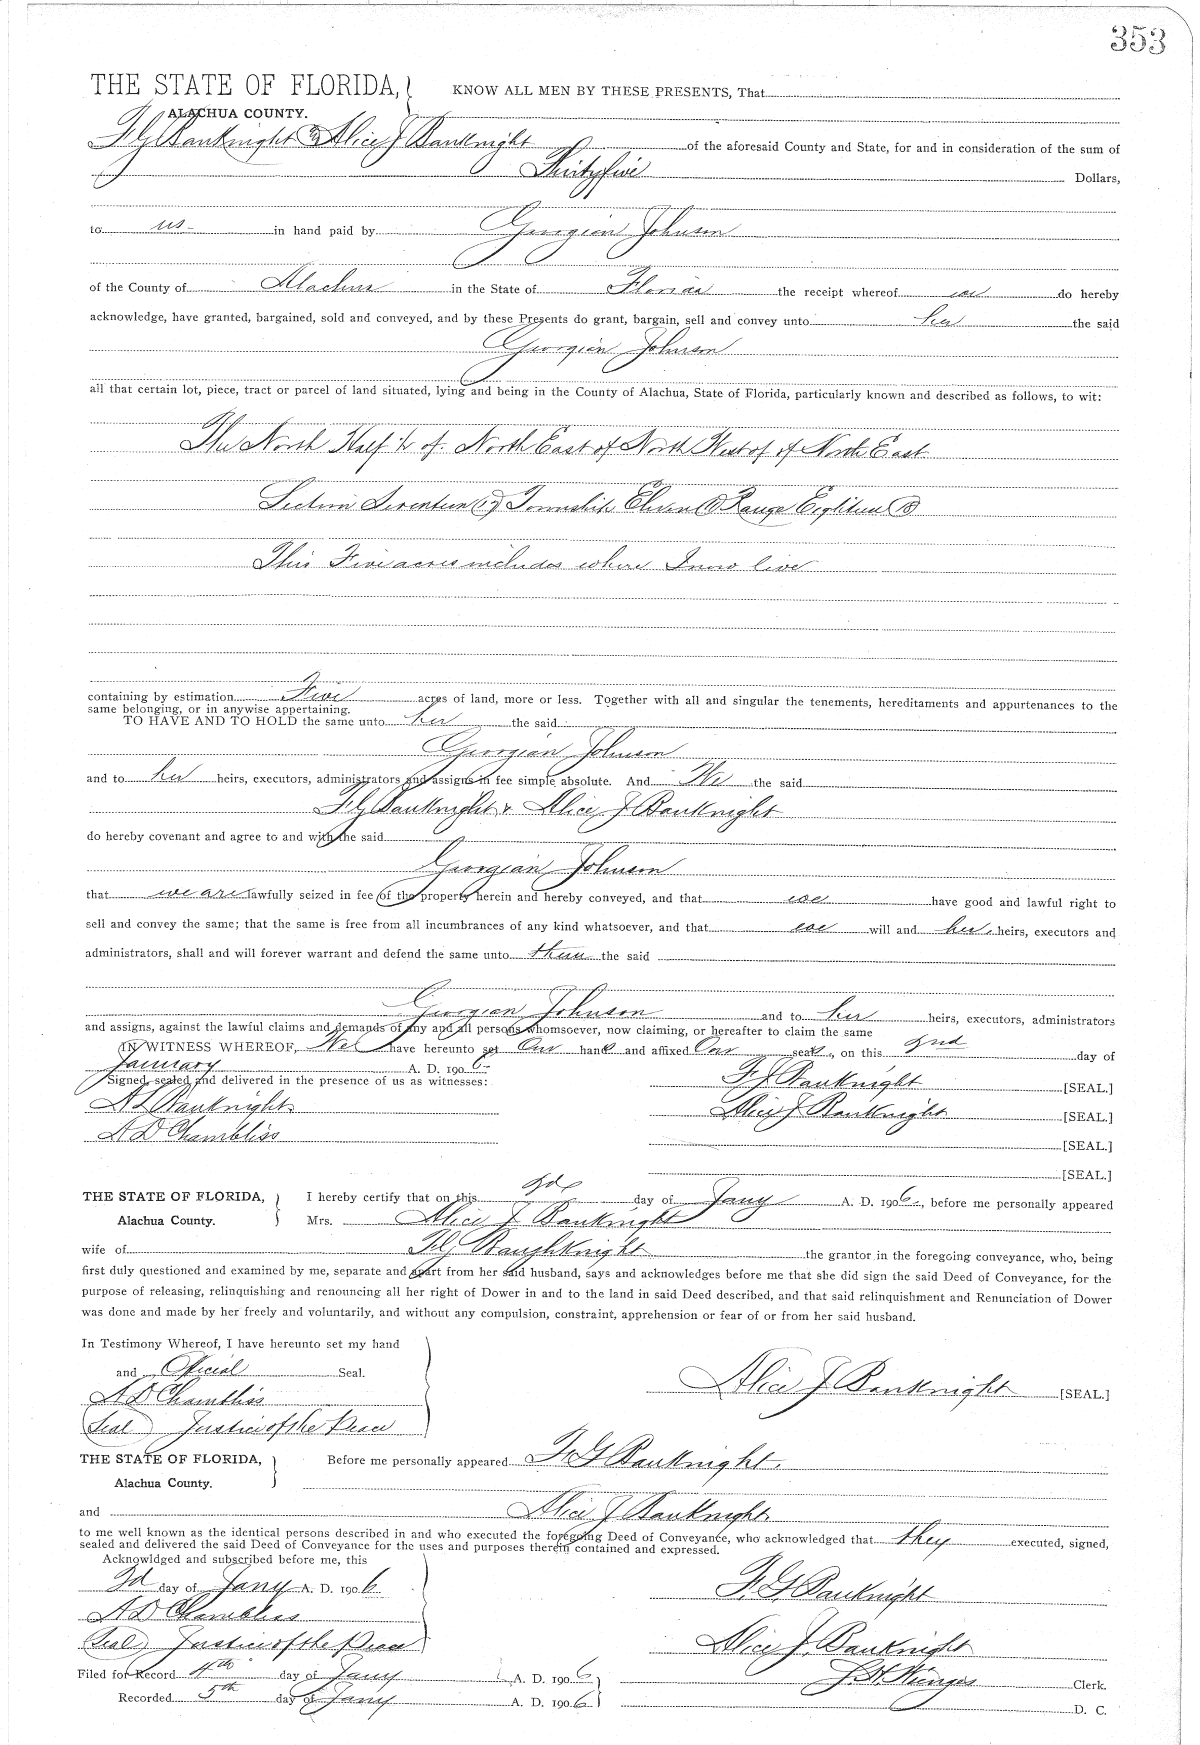 353
THE STATE OF FLORIDA, KNOW ALL MEN BY THESE PRESENTS, That
ALACHUA COUNTY.
F G BanKnight & Alice J BanKnight of the aforesaid County and State, for and in consideration of the sum of
Thirtyfive Dollars,
to us in hand paid by Georgian Johnson
of the County of Alachua in the State of Florida the receipt whereof we do hereby
acknowledge, have granted, bargained, sold and conveyed, and by these Presents do grant, bargain, sell and convey unto her the said
Georgian Johnson
all that certain lot, piece, tract or parcel of land situated, lying and being in the County of Alachua, State of Florida, particularly known and described as follows, to wit:
The North Half ½ of North East of North West of of North East
Section Seventeen (17) Township Eleven (11) Range Eighteen (18)
This Five acres includes where I now live
containing by estimation Five acres of land, more or less. Together with all and singular the tenements, hereditaments and appurtenances to the
same belonging, or in anywise appertaining.
TO HAVE AND TO HOLD the same unto her the said
Georgian Johnson
and to her heirs, executors, administrators and assigns in fee simple absolute. And We the said
F G BanKnight & Alice J BanKnight
do hereby covenant and agree to and with the said
Georgian Johnson
that we are lawfully seized in fee of the property herein and hereby conveyed, and that we have good and lawful right to
sell and convey the same; that the same is free from all incumbrances of any kind whatsoever, and that we will and her heirs, executors and
administrators, shall and will forever warrant and defend the same unto them the said
Georgian Johnson and to her heirs, executors, administrators
and assigns, against the lawful claims and demands of any and all persons whomsoever, now claiming, or hereafter to claim the same
IN WITNESS WHEREOF, We have hereunto set Our hands and affixed Our seals, on this 2nd day of
January A. D. 1906
Signed, sealed and delivered in the presence of us as witnesses: F G BanKnight [SEAL.]
A L BanKnight Alice J BanKnight [SEAL.]
A D Chambliss [SEAL.]
[SEAL.]
THE STATE OF FLORIDA, I hereby certify that on this 2d day of Jany A. D. 1906, before me personally appeared
Alachua County. Mrs. Alice J BanKnight
wife of F G BaughKnight the grantor in the foregoing conveyance, who, being
first duly questioned and examined by me, separate and apart from her said husband, says and acknowledges before me that she did sign the said Deed of Conveyance, for the
purpose of releasing, relinquishing and renouncing all her right of Dower in and to the land in said Deed described, and that said relinquishment and Renunciation of Dower
was done and made by her freely and voluntarily, and without any compulsion, constraint, apprehension or fear of or from her said husband.
In Testimony Whereof, I have hereunto set my hand
and Official Seal.
Alice J BanKnight [SEAL.]
A D Chambliss
(Seal) Justice of the Peace
THE STATE OF FLORIDA, Before me personally appeared F G BanKnight.
Alachua County.
and Alice J BanKnight
to me well known as the identical persons described in and who executed the foregoing Deed of Conveyance, who acknowledged that they executed, signed,
sealed and delivered the said Deed of Conveyance for the uses and purposes therein contained and expressed.
Acknowldged and subscribed before me, this
2d day of Jany A. D. 1906 F. G. BanKnight
A D Chambliss
(Seal) Justice of the Peace Alice J. BanKnight
Filed for Record 4th day of Jany A. D. 1906 Clerk.
Recorded 5th day of Jany A. D. 1906 D. C.